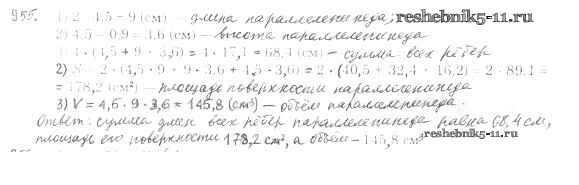 955. 1) 2 · 4,5 = 9 (см) – длина параллелепипеда; reshebnik5-11.ru
2) 4,5 – 0,9 = 3,6 (см) – высота параллелепипеда
1) 4 · (4,5 + 9 + 3,6) = 4 · 17,1 = 68,4 (см) – сумма всех рёбер
2) S = 2 · (4,5 · 9 + 9 · 3,6 + 4,5 · 3,6) = 2 · (40,5 + 32,4 + 16,2) = 2 · 89,1 =
= 178,2 (см²) – площадь поверхности параллелепипеда
3) V = 4,5 · 9 · 3,6 = 145,8 (см³) – объём параллелепипеда.
Ответ: сумма длин всех рёбер параллелепипеда равна 68,4 см,
площадь его поверхности 178,2 см², а объём – 145,8 см³
reshebnik5-11.ru